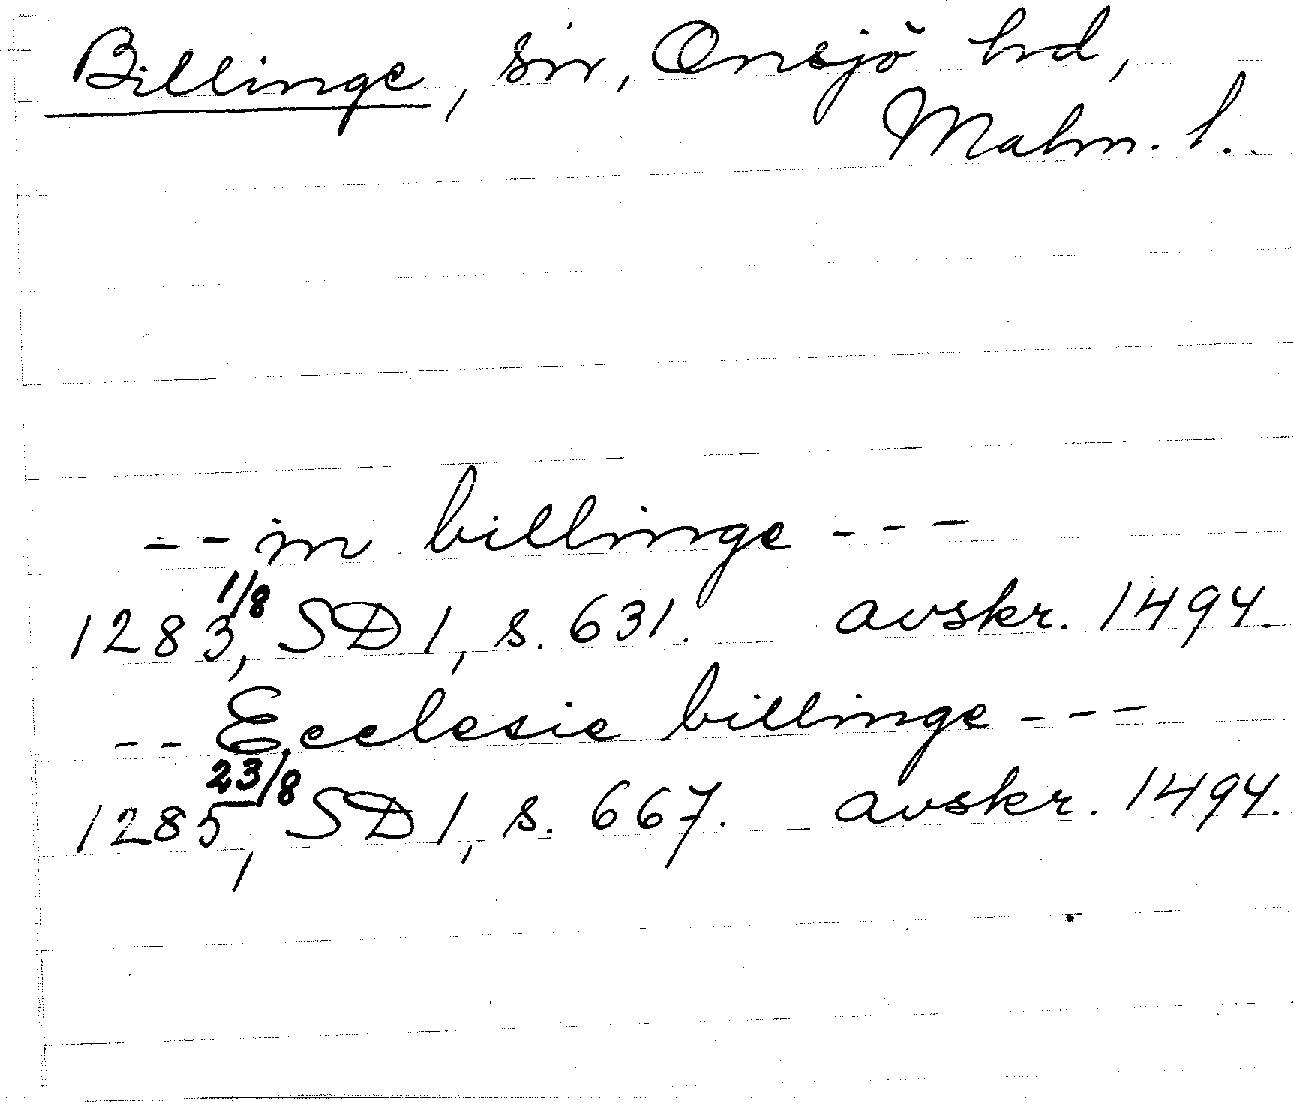 Billinge, sn, Onsjö hd,
Malm. l.
-- in billinge ---
1283 1/8, SD 1, s. 631. avskr. 1494.
-- Ecclesie billinge ---
1285 23/8, SD 1, s. 667. avskr. 1494.